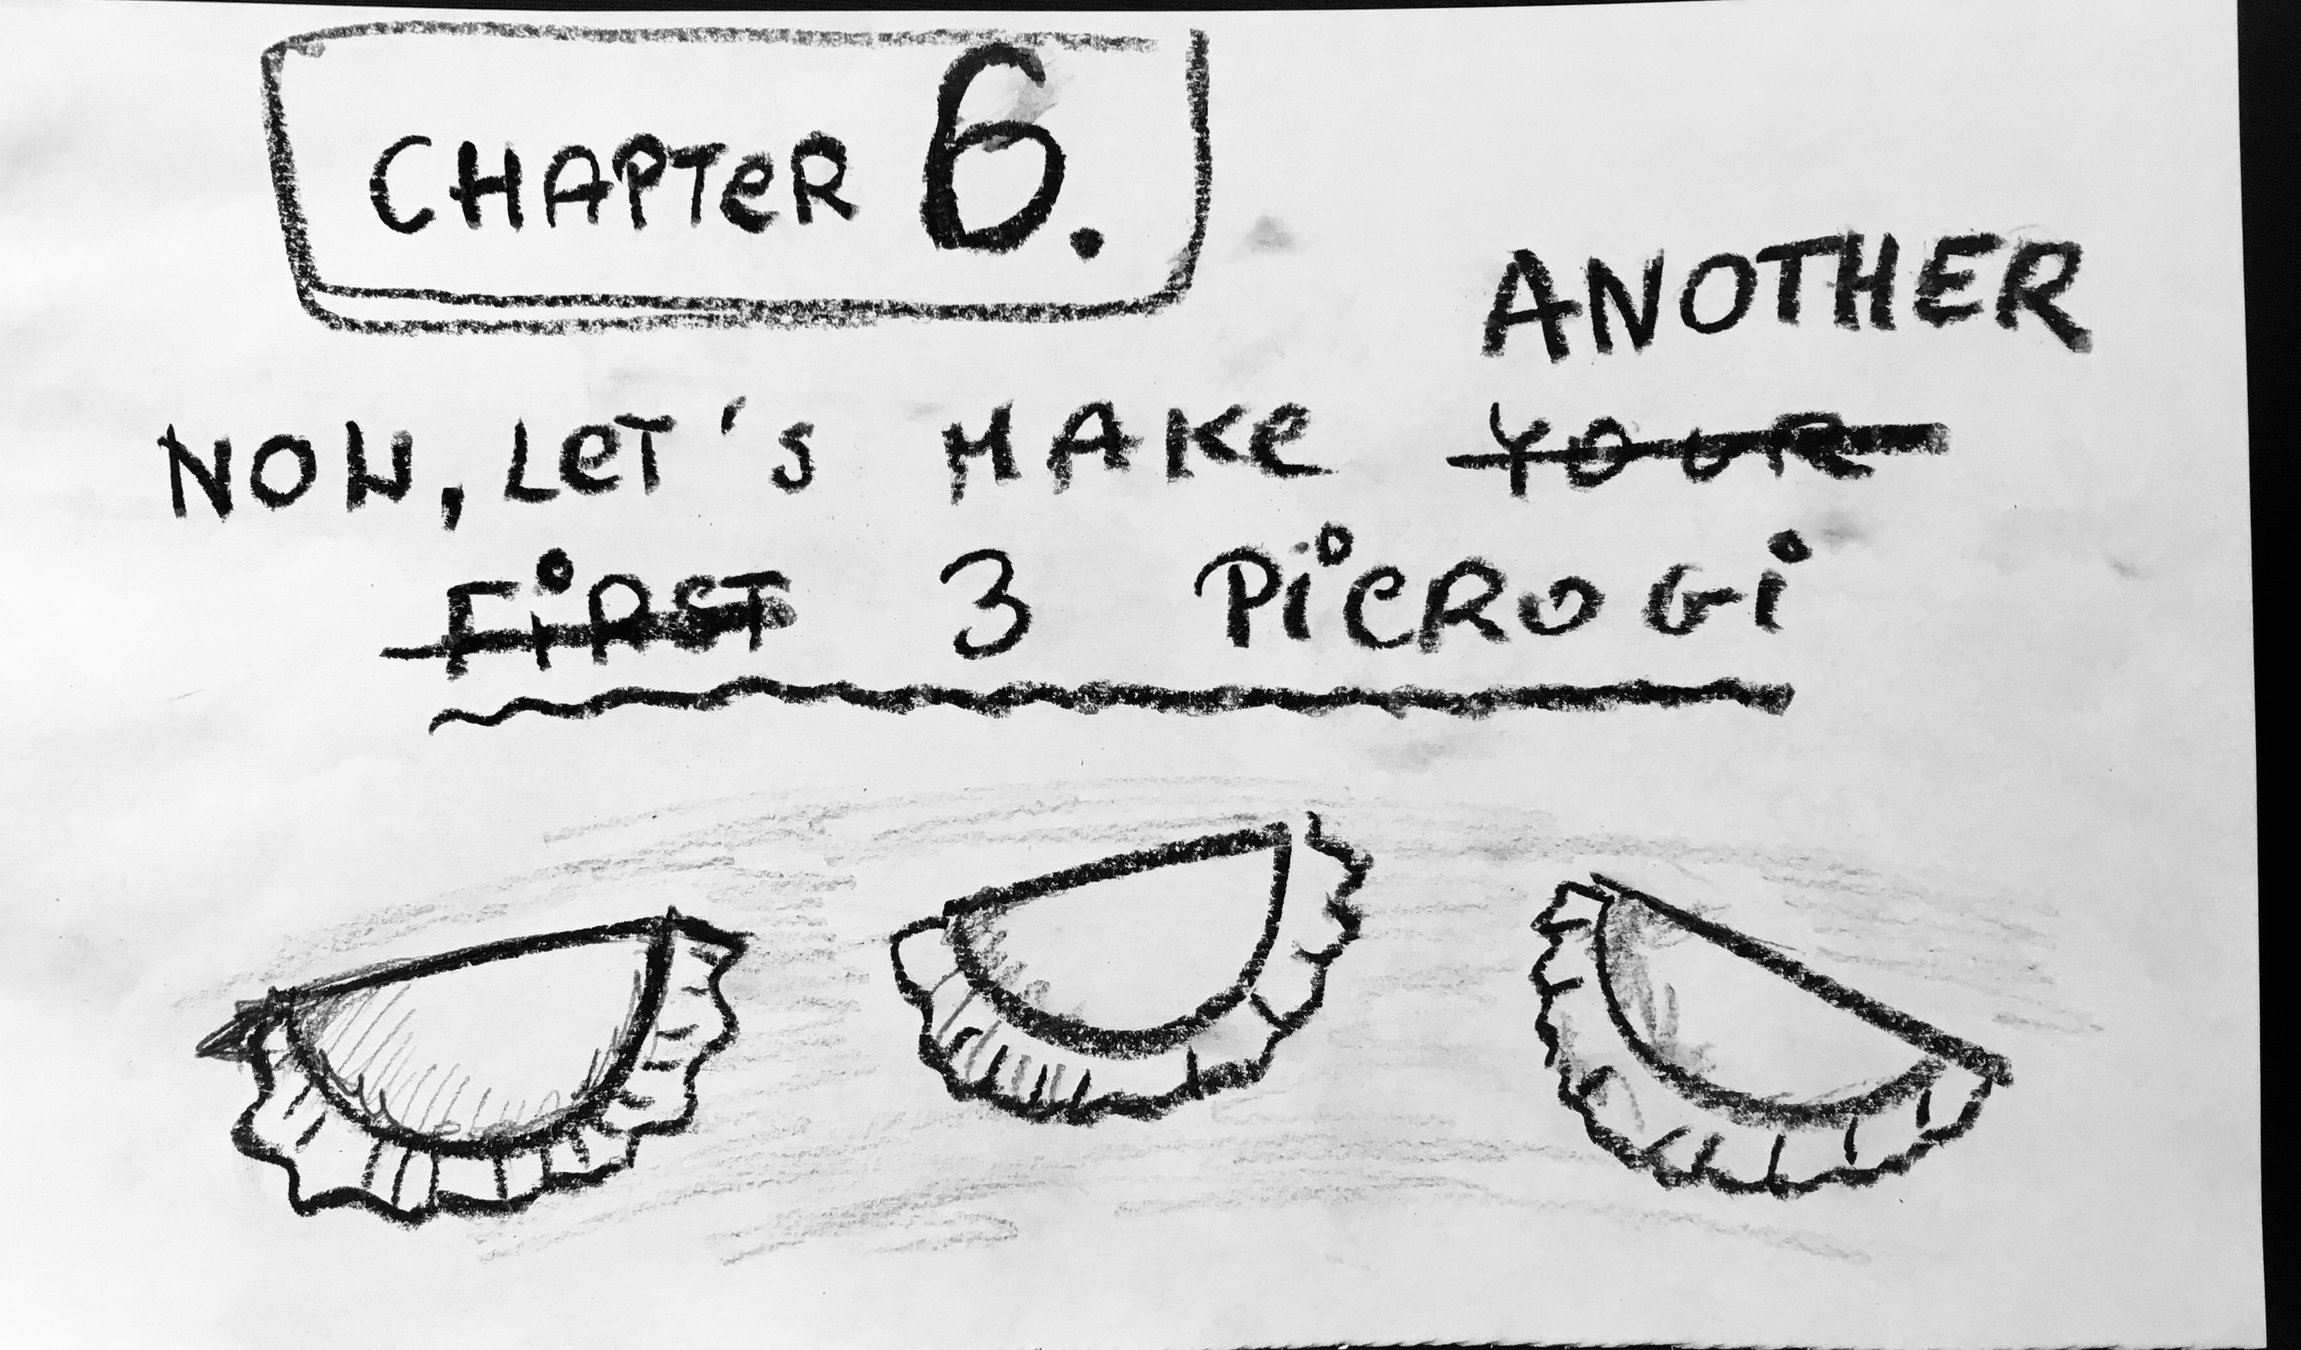 CHAPTeR 6.
ANOTHER
NOW, LeT'S MAKe YOUR
FiRST 3 PieROGi